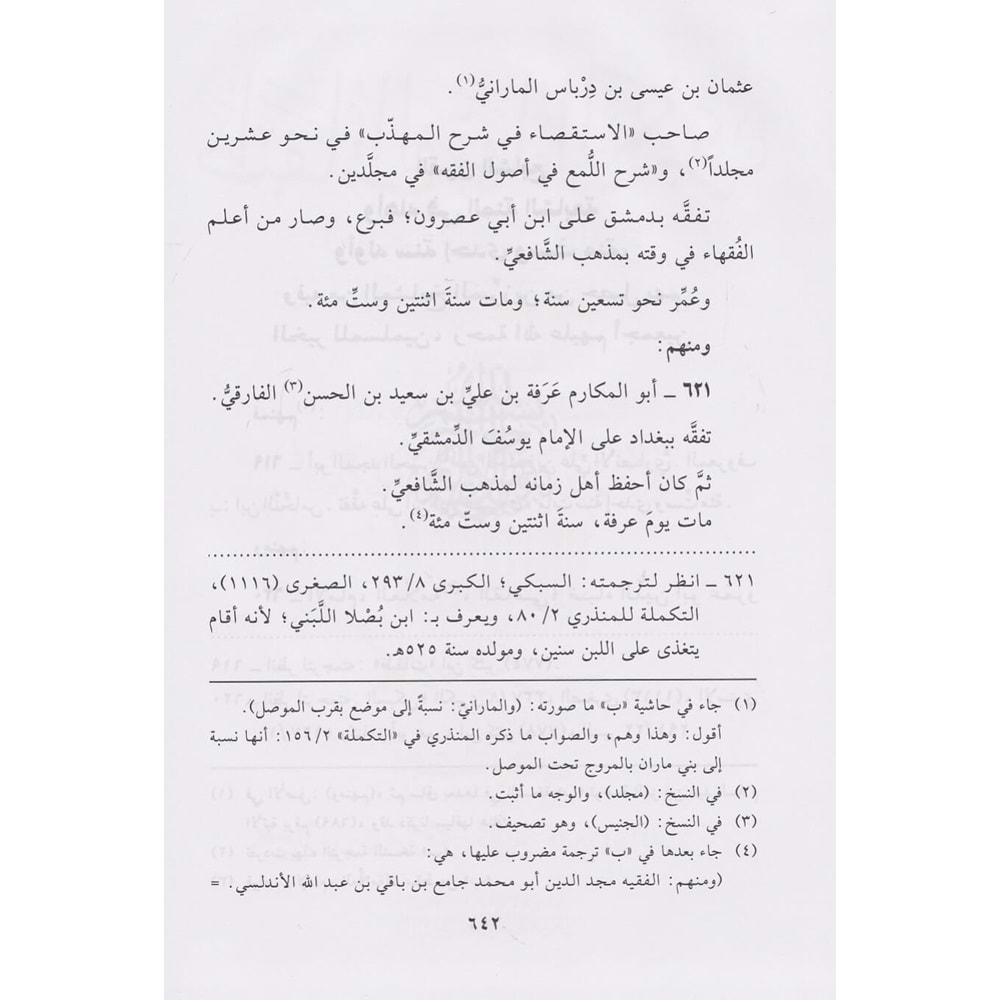 عثمان بن عيسى بن دِرْباس المارانيُّ(١).
صاحب «الاستقصاء في شرح المهذّب» في نحو عشرين
مجلداً(٢)، و«شرح اللُّمع في أصول الفقه» في مجلَّدين.
تفقَّه بدمشق على ابن أبي عصرون؛ فبرع، وصار من أعلم
الفُقهاء في وقته بمذهب الشَّافعيِّ.
وعُمِّر نحو تسعين سنة؛ ومات سنةَ اثنتين وستِّ مئة.
ومنهم:
٦٢١ ـ أبو المكارم عَرَفة بن عليِّ بن سعيد بن الحسن(٣) الفارقيُّ.
تفقَّه ببغداد على الإمام يوسُفَ الدِّمشقيِّ.
ثمَّ كان أحفظ أهل زمانه لمذهب الشَّافعيِّ.
مات يومَ عرفة، سنةَ اثنتين وستّ مئة(٤).
٦٢١ ـ انظر لترجمته: السبكي؛ الكبرى ٢٩٣/٨، الصغرى (١١١٦)،
التكملة للمنذري ٨٠/٢، ويعرف بـ: ابن بُصْلا اللَّبَني؛ لأنه أقام
يتغذى على اللبن سنين، ومولده سنة ٥٢٥هـ.
(١) جاء في حاشية «ب» ما صورته: (والمارانيّ: نسبةً إلى موضع بقرب الموصل).
أقول: وهذا وهم، والصواب ما ذكره المنذري في «التكملة» ١٥٦/٢: أنها نسبة
إلى بني ماران بالمروج تحت الموصل.
(٢) في النسخ: (مجلد)، والوجه ما أثبت.
(٣) في النسخ: (الجنيس)، وهو تصحيف.
(٤) جاء بعدها في «ب» ترجمة مضروب عليها، هي:
(ومنهم: الفقيه مجد الدين أبو محمد جامع بن باقي بن عبد الله الأندلسي. =
٦٤٢